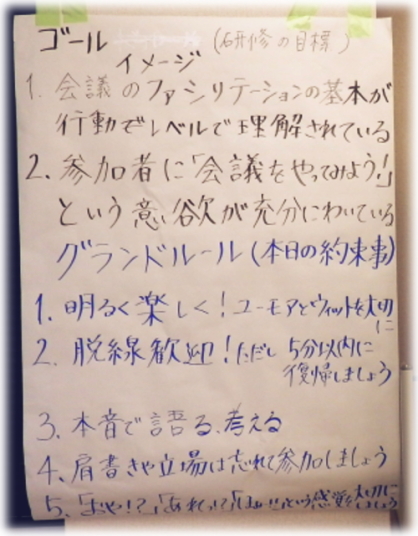 ゴール (研修の目標)
イメージ
1. 会議のファシリテーションの基本が
行動でレベルで理解されている
2. 参加者に「会議をやってみよう!」
という意欲が充分にわいている
グランドルール(本日の約束事)
1. 明るく楽しく!ユーモアとウィットを大切
に
2. 脱線歓迎!ただし5分以内に
復帰しましょう
3. 本音で語る、考える
4. 肩書きや立場は忘れて参加しましょう
5. 「おや!?」「あれっ?」「はぁ!!」という感覚を大切に
しましょう